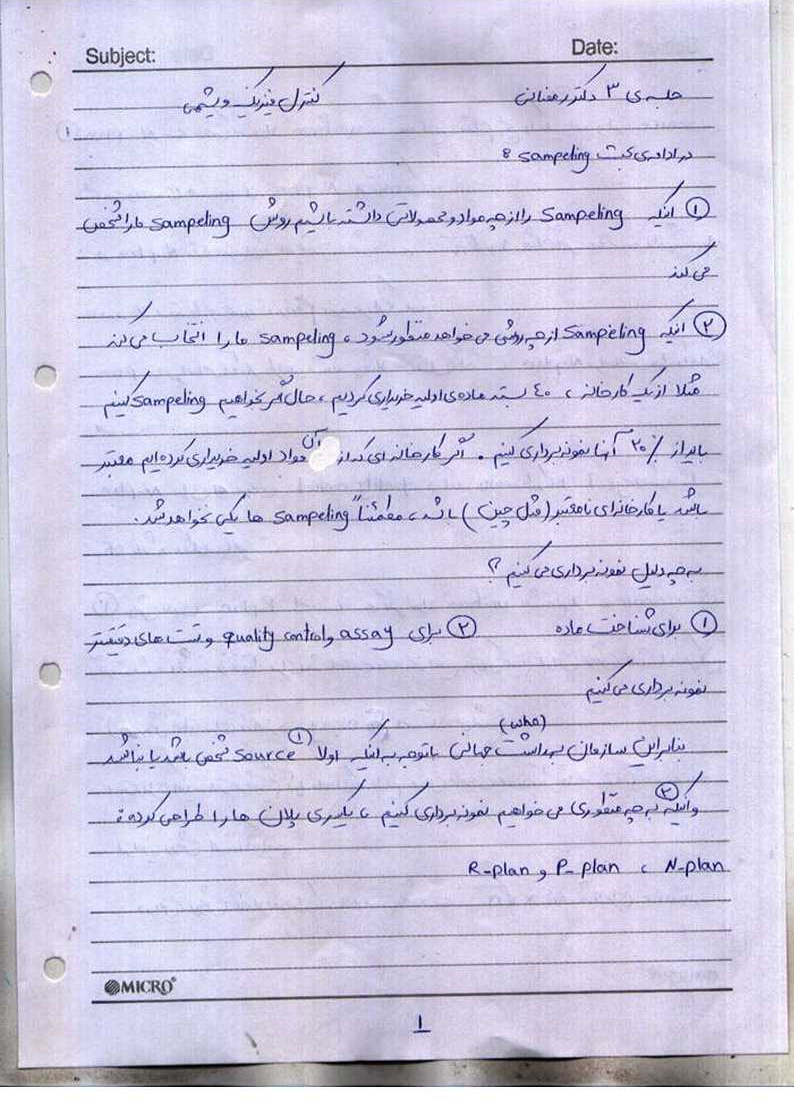 Subject: Date:
جلسه ی ۳ دکتر رمضانی کنترل فیزیک و شیمی
در ادامه ی بحث sampeling :
① اینکه Sampeling را از چه مواد و محصولاتی داشته باشیم روش Sampeling ما را مشخص
می کند
② اینکه Sampeling از چه روشی می خواهد منظور شود ، sampeling ما را انتخاب می کند
مثلا از یک کارخانه ، ٤٠ بسته ماده ی اولیه خریداری کردیم ، حال اگر بخواهیم sampeling کنیم
باید از ۲۰٪ آنها نمونه برداری کنیم . اگر کارخانه ای که از آن مواد اولیه خریداری کرده ایم معتبر
باشد یا کارخانه ای نامعتبر (مثل چین) باشد ، مطمئناً sampeling ها یکی نخواهد شد.
به چه دلیل نمونه برداری می کنیم ؟
① برای شناخت ماده ② برای assay و quality control و تست های دقیقتر
نمونه برداری می کنیم
(who)
بنابراین سازمان بهداشت جهانی با توجه به اینکه اولا ① source مشخص باشد یا نباشد
و اینکه ② به چه منظوری می خواهیم نمونه برداری کنیم ، یکسری پلان ها را طراحی کرده :
N-plan ، P-plan و R-plan
MICRO
1